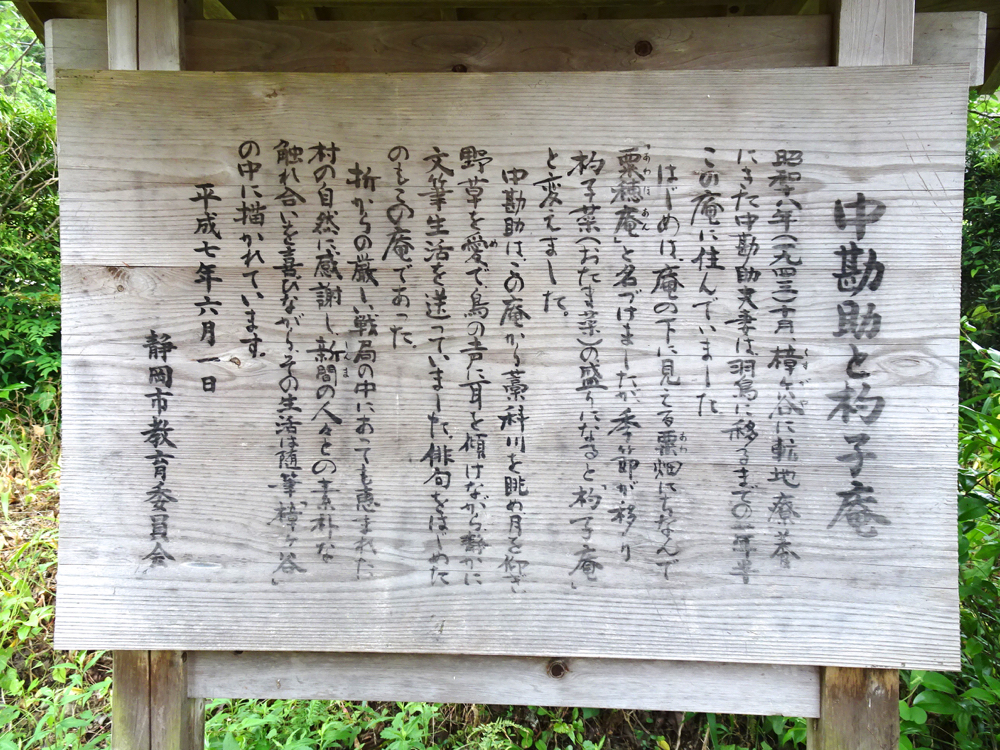 中勘助と杓子庵
昭和十八年(一九四三)十月、樟ヶ谷に転地療養
にきた中勘助夫妻は、羽鳥に移るまでの一年半
この庵に住んでいました
はじめは、庵の下に見える粟畑にちなんで
「粟穂庵」と名づけましたが、季節が移り
杓子菜(おたま菜)の盛りになると「杓子庵」
と変えました。
中勘助は、この庵から藁科川を眺め月を仰ぎ
野草を愛で鳥の声に耳を傾けながら、静かに
文筆生活を送っていました。俳句をはじめた
のもこの庵であった。
折からの厳しい戦局の中にあっても恵まれた
村の自然に感謝し、新間の人々との素朴な
触れ合いを喜びながら、その生活は随筆「樟ヶ谷」
の中に描かれています。
平成七年六月一日
静岡市教育委員会